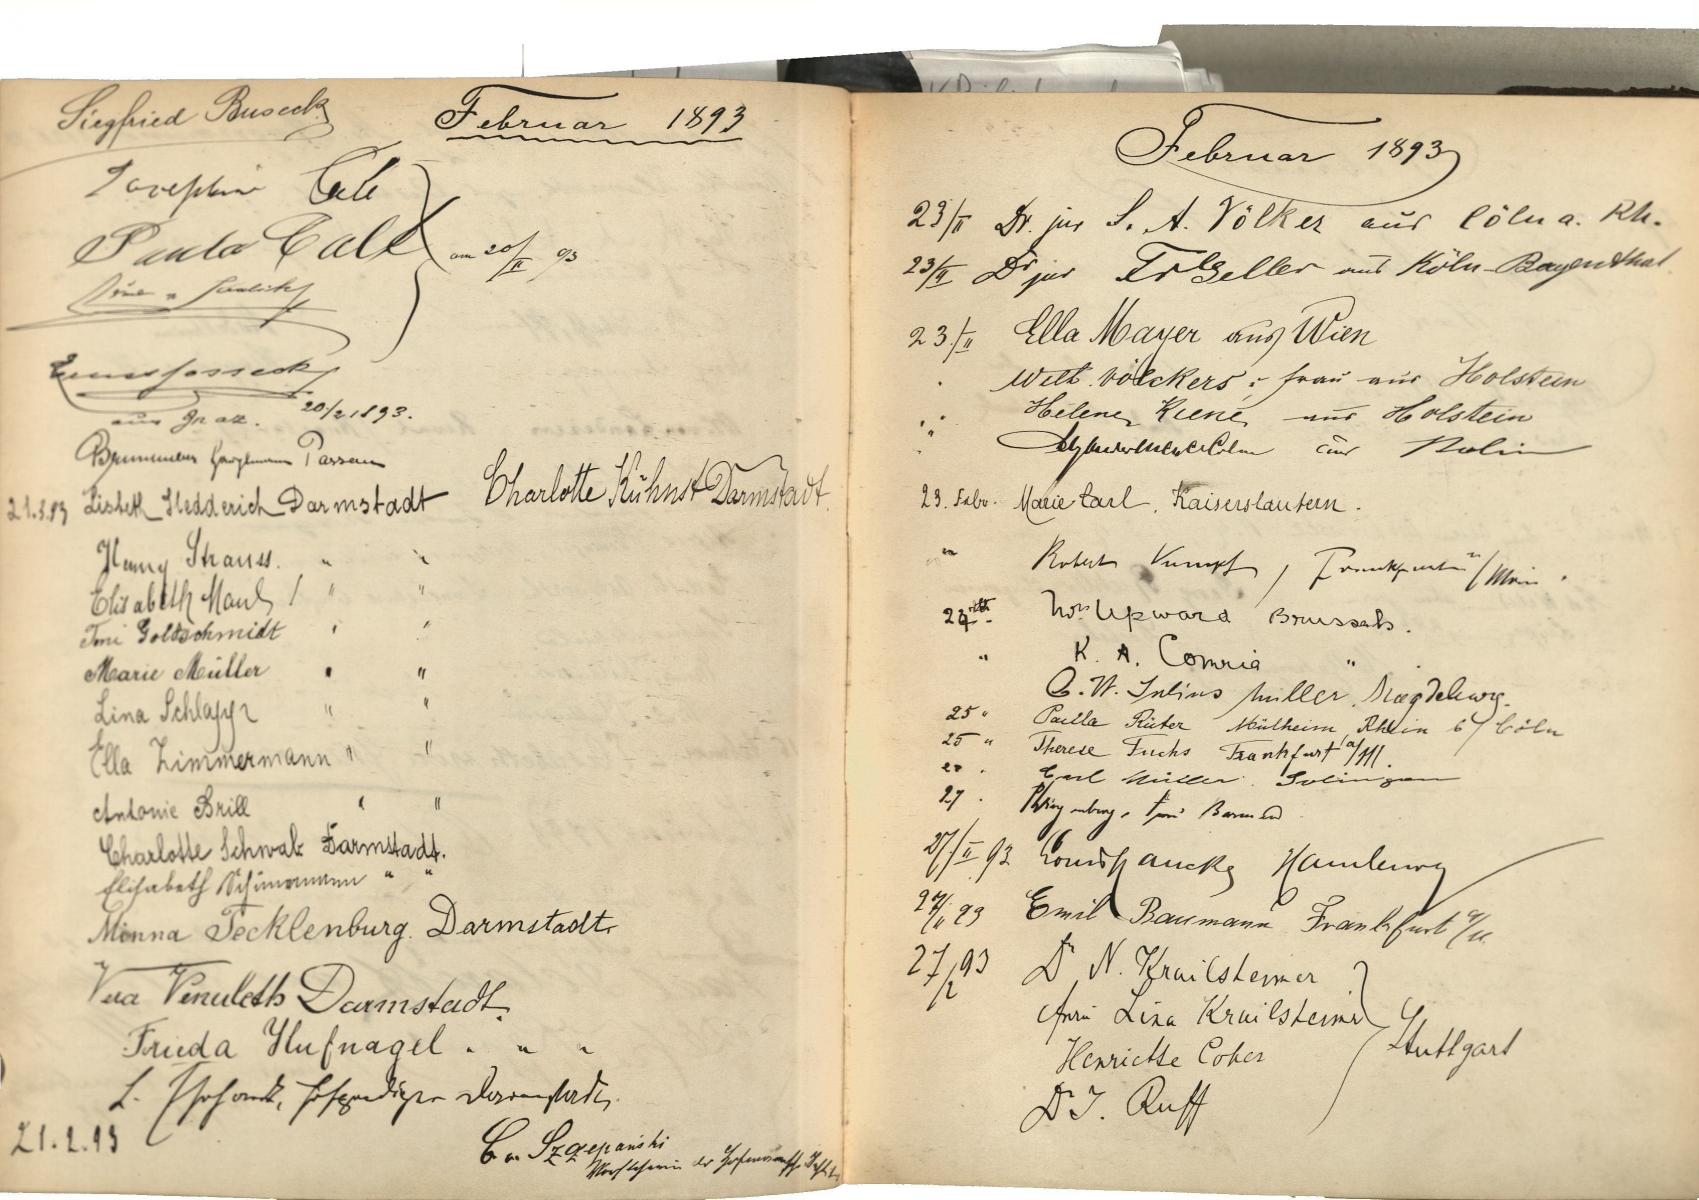 Siegfried Buseck
Februar 1893
Josephine
Paula
am 20/II 93
20/2 1893.
aus Graz.
Passau
21.2.93 Lisbeth Hedderich Darmstadt
Charlotte Kühnst Darmstadt.
Henny Strauss. " "
Elisabeth Maul / " "
Toni Goldschmidt " "
Marie Müller " "
Lina " "
Ella Zimmermann " "
Antonie Brill " "
Charlotte Schwab Darmstadt.
Elisabeth " "
Minna Tecklenburg. Darmstadt.
Vera Venuleth Darmstadt.
Frieda Hufnagel " " "
L. Hofprediger Darmstadt.
21.2.93
C. v. Szczepański
Vorsteherin der
Februar 1893
23/II Dr. jur S. A. Völker aus Cöln a. Rh.
23/II Dr jur aus Köln-Bayenthal
23./II Ella Mayer aus Wien
" Völckers, Frau aus Holstein
" Helene aus Holstein
" aus
23. Febr. Marie Carl, Kaiserslautern.
" Robert Kumpf, Frankfurt a/Main.
24. Upward Brussels.
" K. A. Comrie "
C. W. Julius Müller, Magdeburg.
25 " Paula Rüter Mülheim, Rhein b/ Cöln
25 " Therese Fuchs Frankfurt a/M.
Carl Müller. Solingen
27 . Barmen
27/II 93 Hamburg
27/II 93 Emil Baumann Frankfurt a/M.
27/2 93 Dr N. Krailsheimer
Lina Krailsheimer
Stuttgart
Henriette
Dr J. Ruff